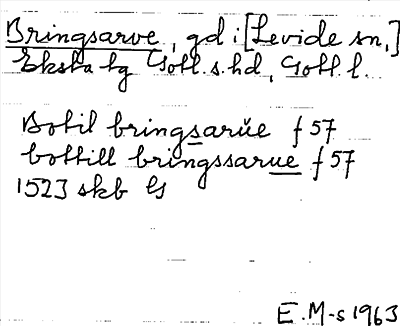 Bringsarve, gd i [Levide sn,]
Eksta tg Gotl. s. hd, Gotl. l.
Botil bringsarŭe f 57
bottill bringssarue f 57
1523 skb G
E. M-s 1963